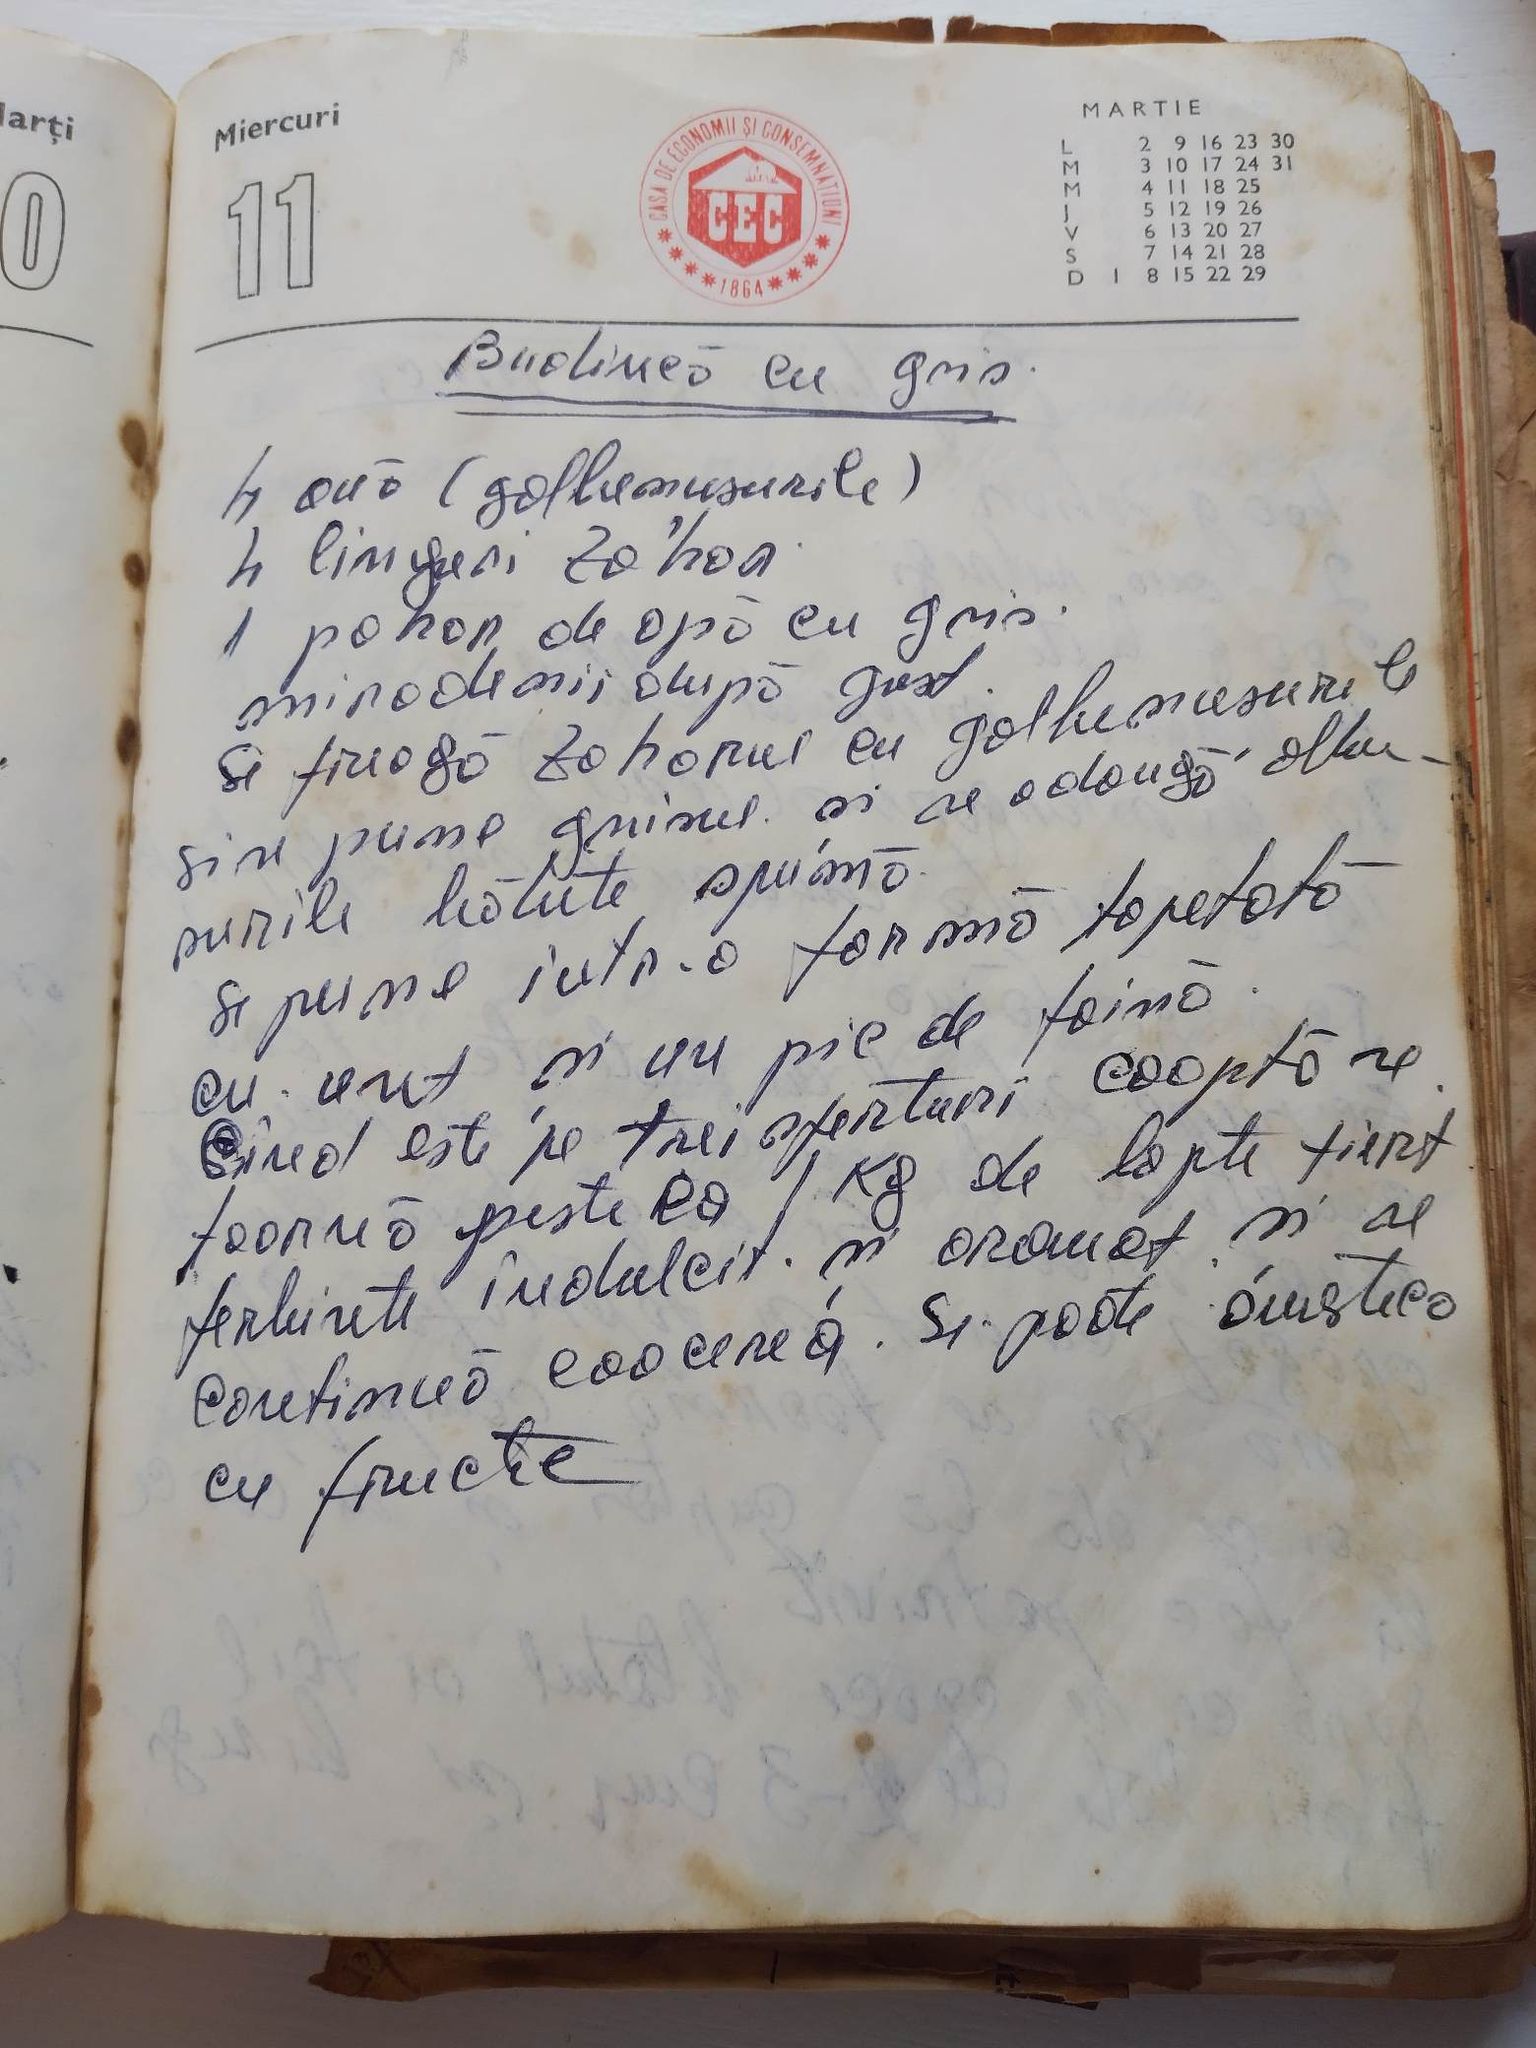 Marți
0
Miercuri
11
CASA DE ECONOMII ȘI CONSEMNAȚIUNI
CEC
1864
MARTIE
L 2 9 16 23 30
M 3 10 17 24 31
M 4 11 18 25
J 5 12 19 26
V 6 13 20 27
S 7 14 21 28
D 1 8 15 22 29
Budincă cu gris.
4 ouă (galbenusurile)
4 linguri zahar
1 pahar de apă cu gris.
mirodenii după gust.
Se freagă zaharul cu galbenusurile
si se pune grisul si se adaugă albu-
surile bătute spumă.
Se pune intr-o formă tapetată
cu unt si un pic de faină.
Cînd este pe trei sferturi coaptă se
toarnă peste ea 1 kg de lapte fiert
ferbinte indulcit si aromat si se
continuă coacerea. Se poate amesteca
cu fructe